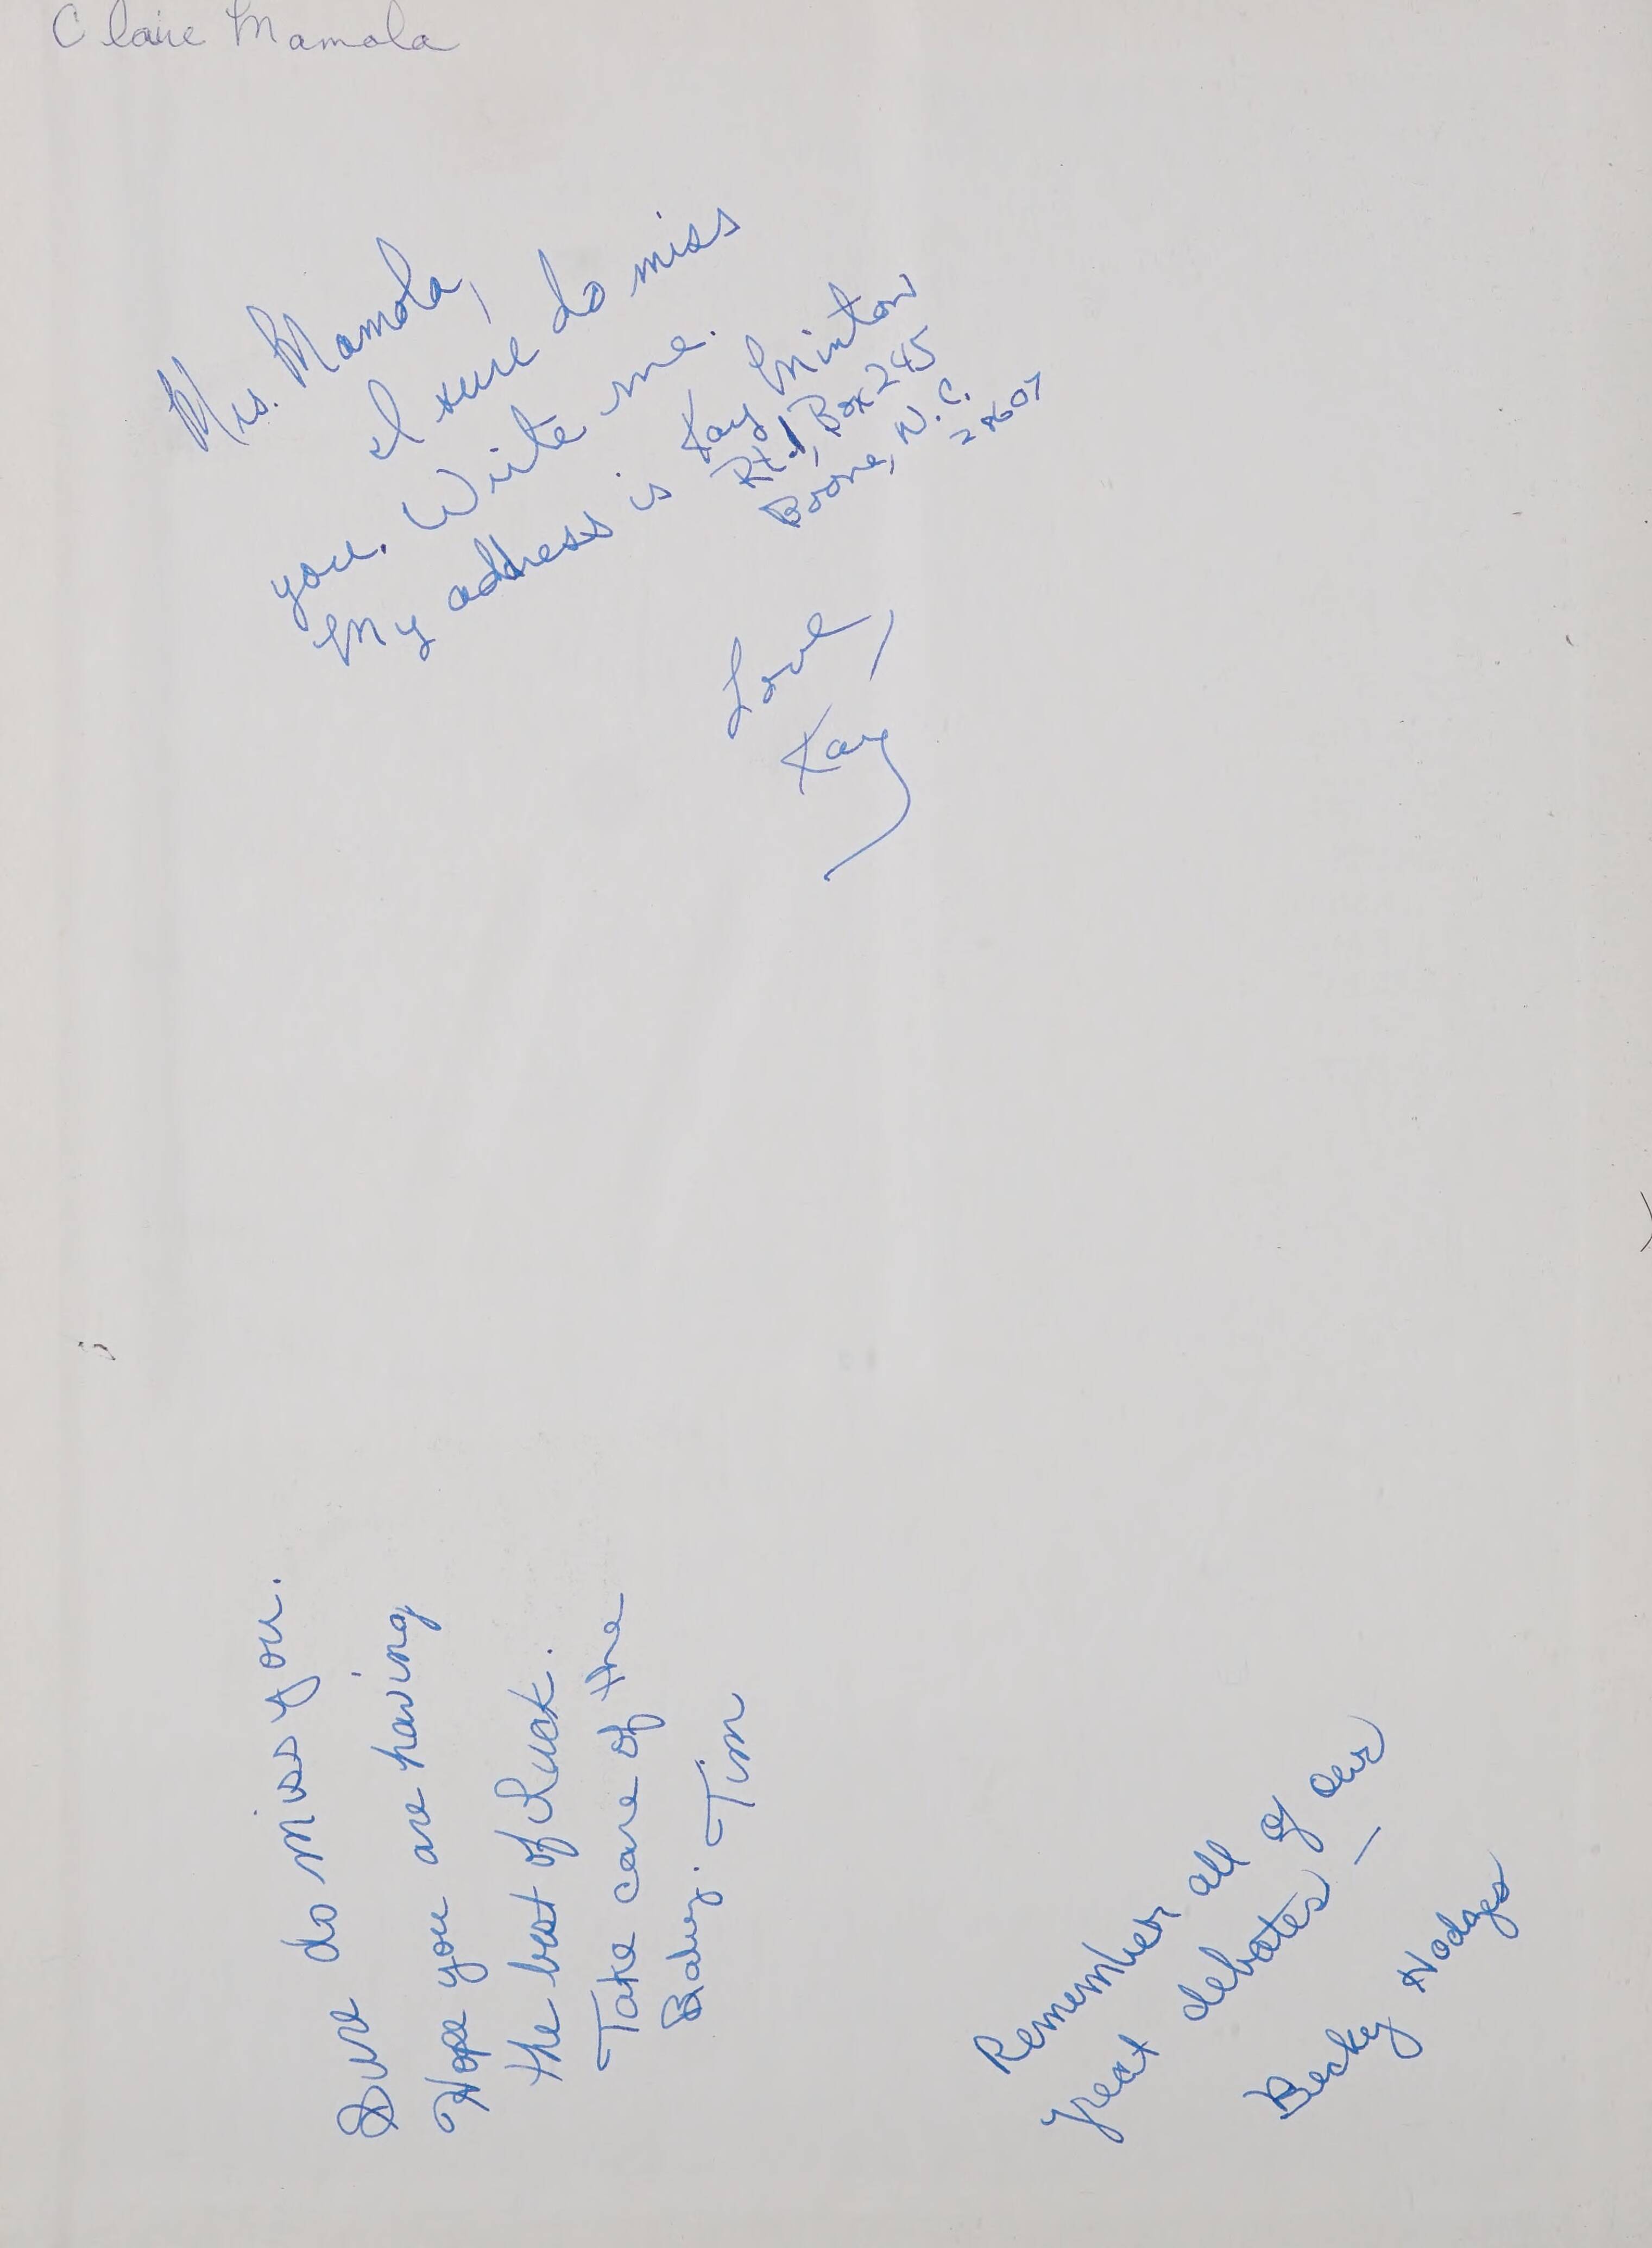 Claire Mamola
Mrs. Mamola,
I sure do miss
you. Write me.
My address is Kay Minton
Rt. 1, Box 245
Boone, N.C.
28607
Love,
Kay
Sure do miss you.
Hope you are having
the best of luck.
Take care of the
Baby. Tim
Remember all of our
great debates –
Becky Hodges